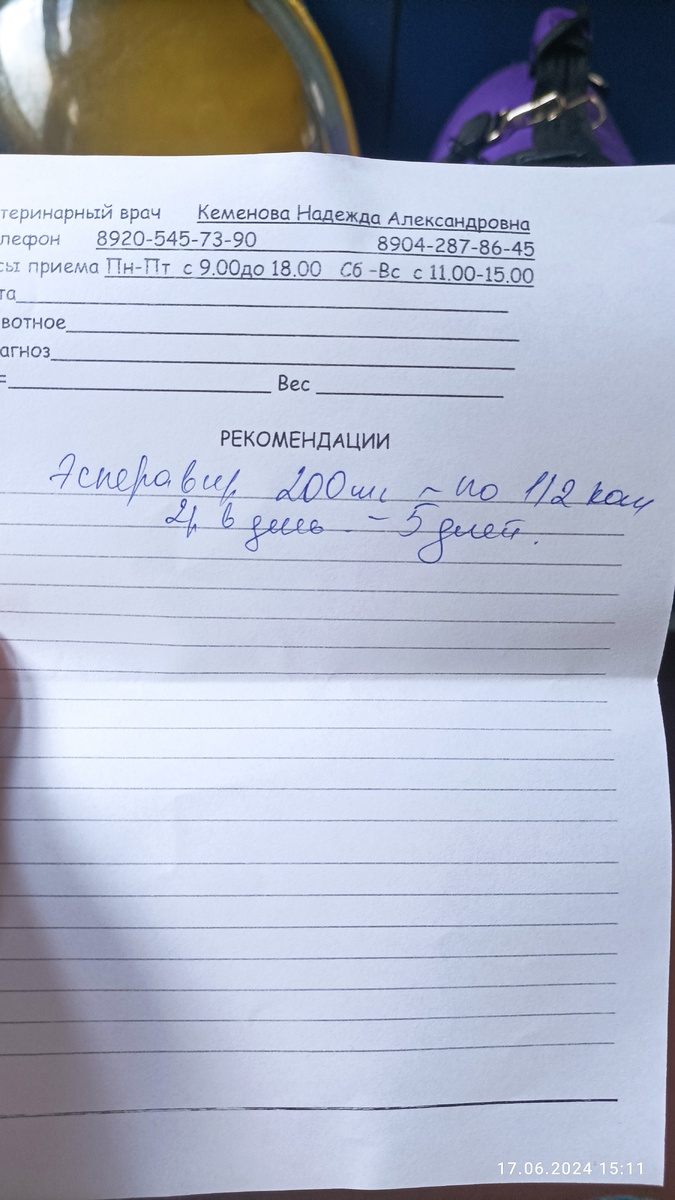 теринарный врач Кеменова Надежда Александровна
лефон 8920-545-73-90 8904-287-86-45
сы приема Пн-Пт с 9.00до 18.00 Сб -Вс с 11.00-15.00
та
вотное
агноз
Вес
РЕКОМЕНДАЦИИ
Эсперавир 200мг - по 1/2 кап
2р в день - 5 дней.
17.06.2024 15:11